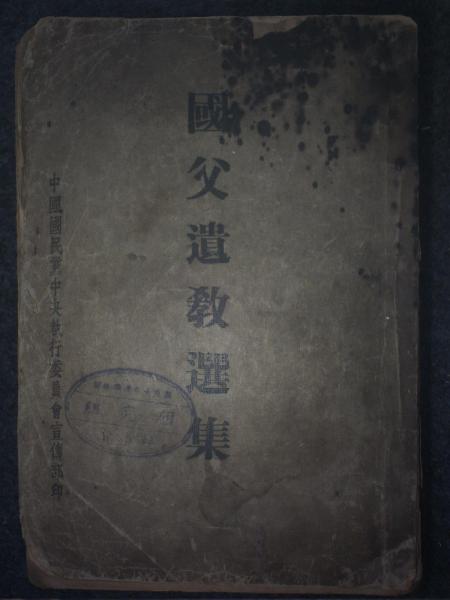 國父遺教選集
中國國民黨中央執行委員會宣傳部印